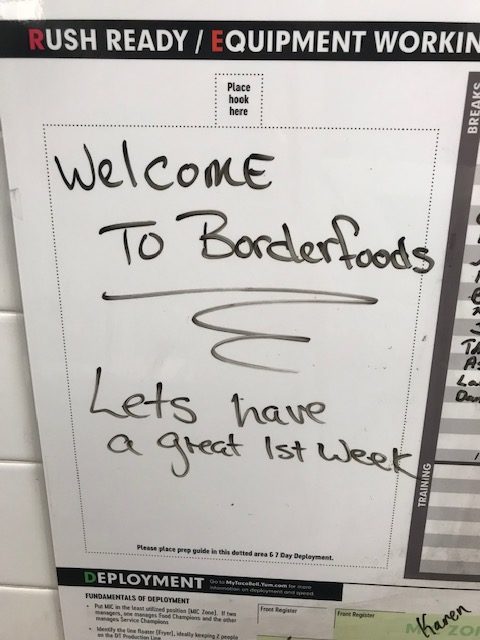 RUSH READY / EQUIPMENT WORKIN
Place
hook
here
BREAKS
Welcome
To Borderfoods
Lets have
a great 1st week
TRAINING
Please place prep guide in this dotted area & 7 Day Deployment.
DEPLOYMENT
Go to MyTacoBell.Yum.com for more
information on deployment and speed.
FUNDAMENTALS OF DEPLOYMENT
Put MIC in the least utilized position (MIC Zone). If two
managers, one manages Food Champions and the other
manages Service Champions
Identify the line floater (Fryer), ideally keeping 2 people
on the DT Production Line
Front Register
Front Register
Karen